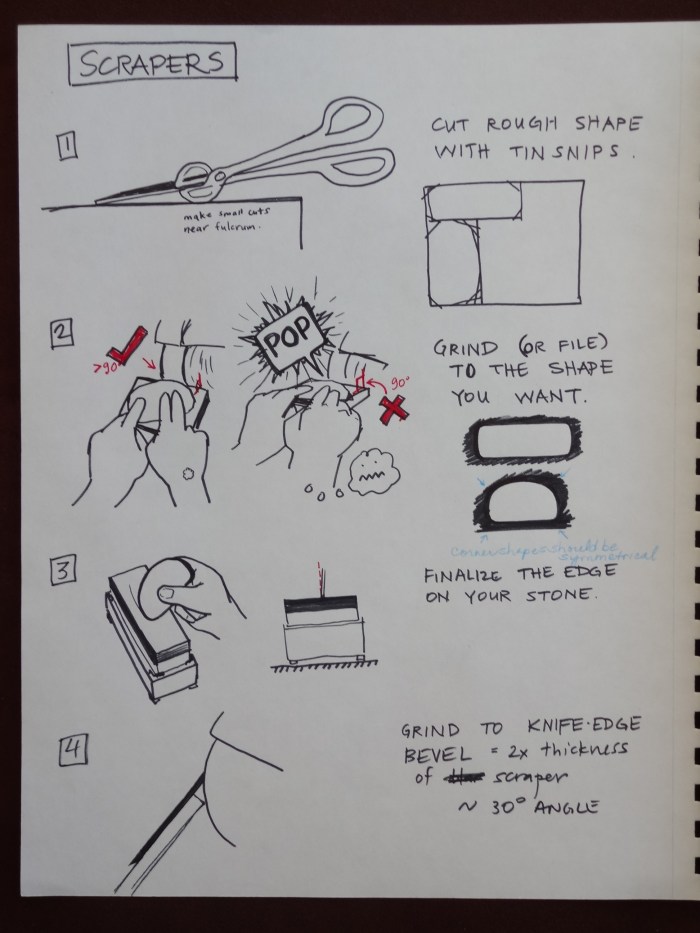 SCRAPERS
1
CUT ROUGH SHAPE
WITH TINSNIPS.
make small cuts
near fulcrum.
2
>90°
POP
90°
GRIND (OR FILE)
TO THE SHAPE
YOU WANT.
corner shapes should be
symmetrical
3
FINALIZE THE EDGE
ON YOUR STONE.
4
GRIND TO KNIFE-EDGE
BEVEL = 2x thickness
of scraper
~ 30° ANGLE